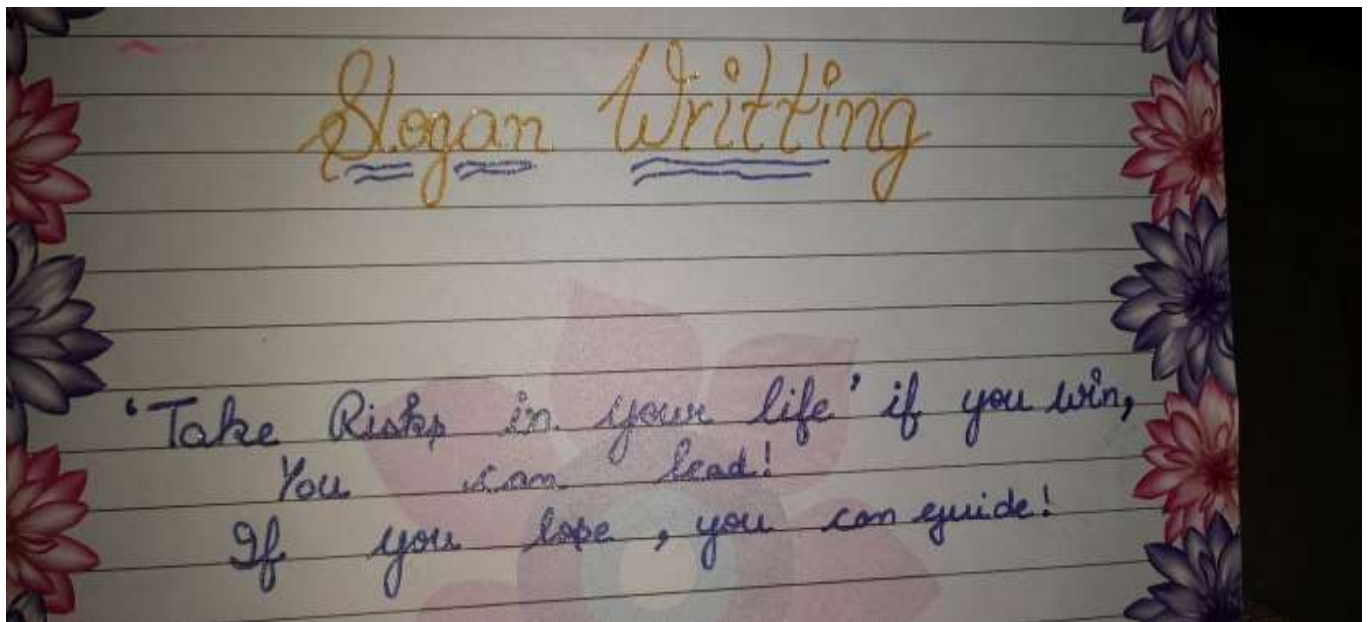 Slogan Writting
'Take Risks in your life' if you win,
You can lead!
If you lose, you can guide!